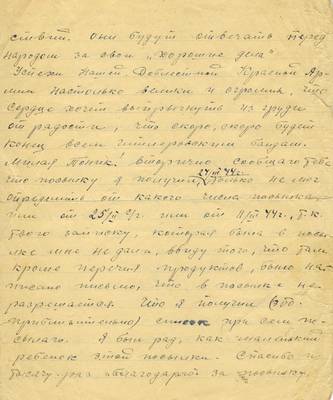 ствий. Они будут отвечать перед
народом за свои „хорошие дела".
Успехи Нашей Доблестной Красной Ар-
мии настолько велики и огромны, что
сердце хочет выпрыгнуть из груди
от радости, что скоро, скоро будет
конец всем гитлеровским бандам.
Милая Тоник! Вторично сообщаю тебе
что посылку я получил 24/III 44г. только не мог
определить от какого числа посылка
или от 25/II с/г. или от 11/III 44г., т.к.
твою записку, которая была в посы-
лке мне не дали, ввиду того, что там
кроме перечня продуктов, было на-
писано письмо, что в посылке не
разрешается. Что я получил
приблизительно) список при сем по-
сылаю. Я был рад, как маленький
ребенок этой посылки. Спасибо и
тысячу раз благодарю за посылку.